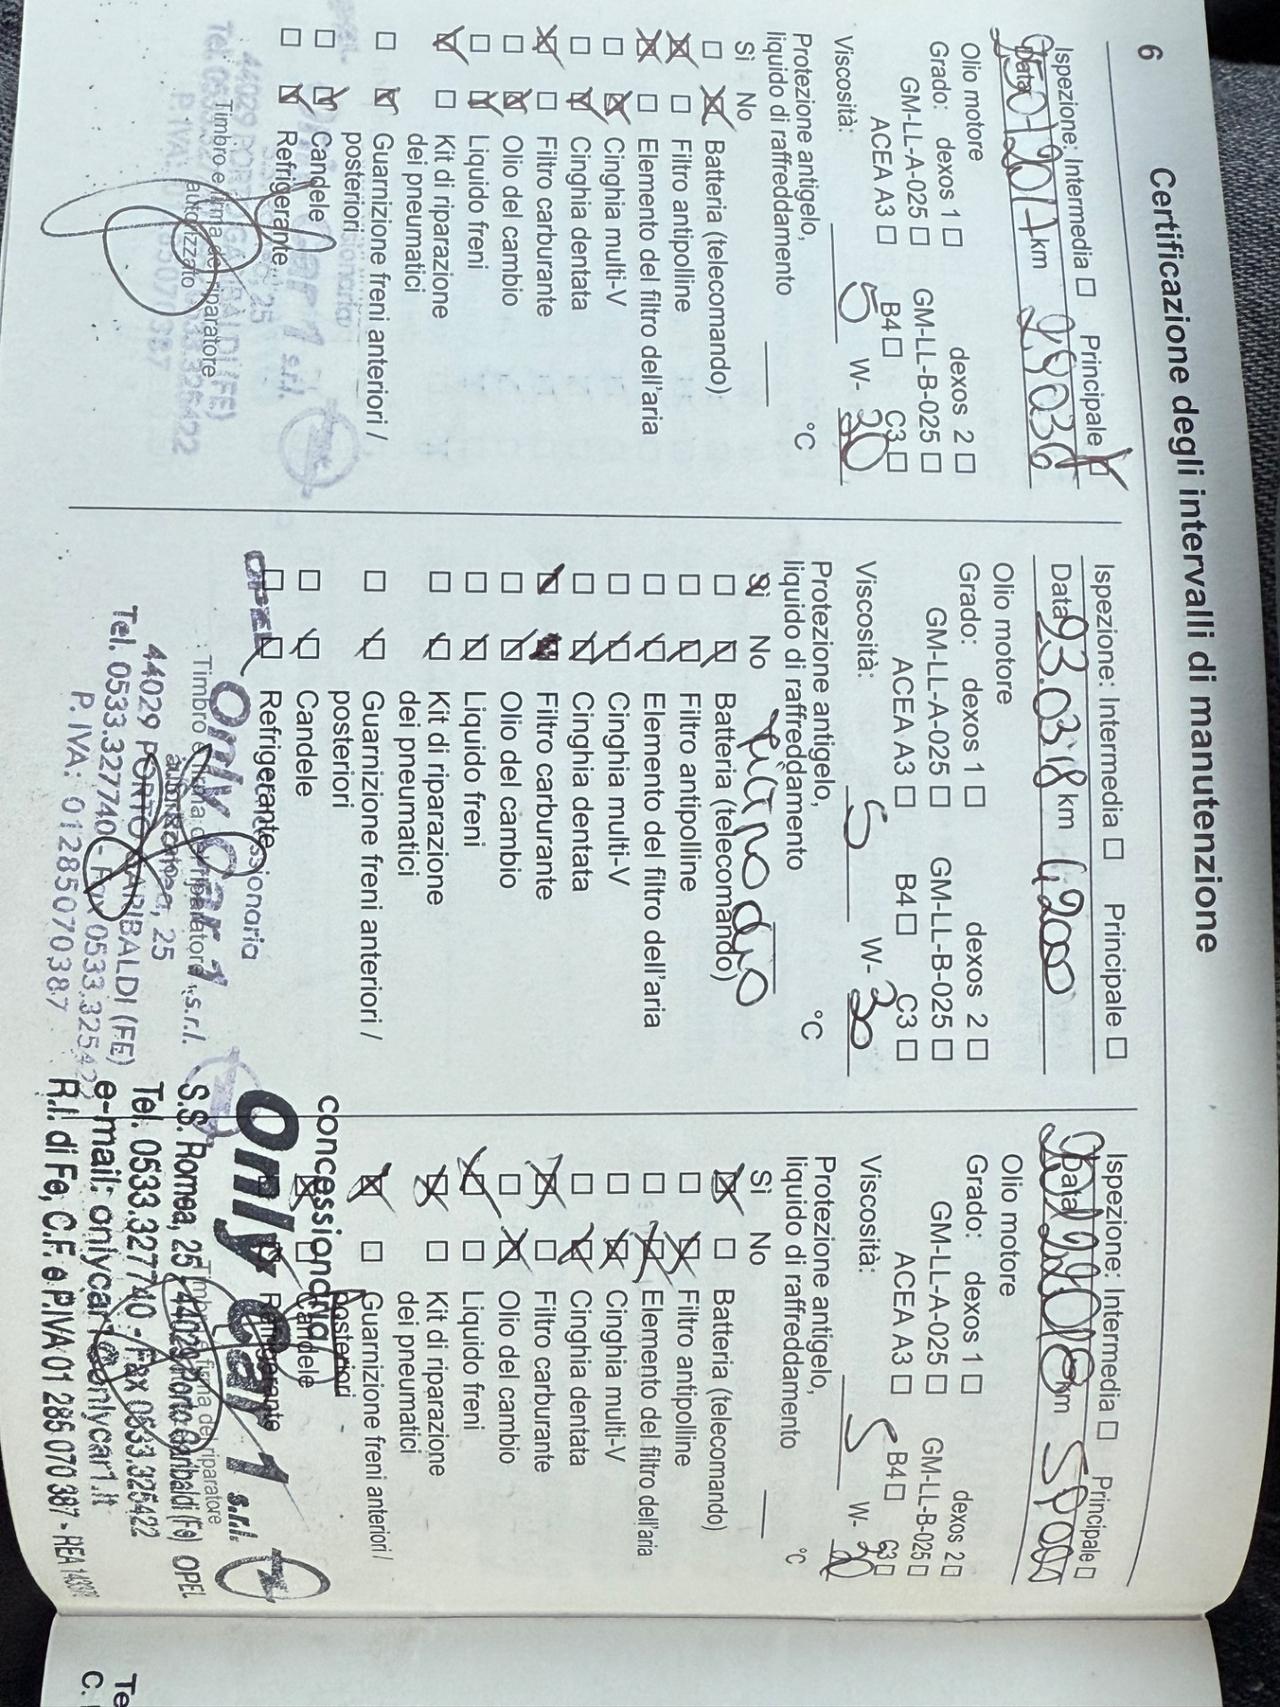 6
Certificazione degli intervalli di manutenzione
Ispezione: Intermedia ☐ Principale ☒
Data 2017 km 29036
Olio motore
Grado: dexos 1 ☐ dexos 2 ☐
GM-LL-A-025 ☐ GM-LL-B-025 ☐
ACEA A3 ☐ B4 ☐ C3 ☐
Viscosità: 5 W- 30
Protezione antigelo,
liquido di raffreddamento °C
Sì No
☐ ☒ Batteria (telecomando)
☒ ☐ Filtro antipolline
☒ ☐ Elemento del filtro dell'aria
☐ ☒ Cinghia multi-V
☐ ☒ Cinghia dentata
☒ ☐ Filtro carburante
☐ ☒ Olio del cambio
☐ ☒ Liquido freni
☒ ☐ Kit di riparazione
dei pneumatici
☐ ☒ Guarnizione freni anteriori /
posteriori
☐ ☒ Candele
☐ ☒ Refrigerante
Timbro e firma del riparatore
autorizzato
Ispezione: Intermedia ☐ Principale ☐
Data 23.03.18 km 42000
Olio motore
Grado: dexos 1 ☐ dexos 2 ☐
GM-LL-A-025 ☐ GM-LL-B-025 ☐
ACEA A3 ☐ B4 ☐ C3 ☐
Viscosità: 5 W- 30
Protezione antigelo,
liquido di raffreddamento °C
Sì No
☐ ☒ Batteria (telecomando)
☐ ☒ Filtro antipolline
☐ ☒ Elemento del filtro dell'aria
☐ ☒ Cinghia multi-V
☐ ☒ Cinghia dentata
☒ Filtro carburante
☐ ☒ Olio del cambio
☐ ☒ Liquido freni
☐ ☒ Kit di riparazione
dei pneumatici
☐ ☒ Guarnizione freni anteriori /
posteriori
☐ ☒ Candele
☐ ☒ Refrigerante
OPEL
Only Car 1 s.r.l.
Timbro e firma del riparatore
44029 PORTO GARIBALDI (FE)
Tel. 0533.327740 - Fax 0533.325422
P. IVA: 01285070387
Ispezione: Intermedia ☐ Principale ☐
Data km
Olio motore
Grado: dexos 1 ☐ dexos 2 ☐
GM-LL-A-025 ☐ GM-LL-B-025 ☐
ACEA A3 ☐ B4 ☐ C3 ☐
Viscosità: 5 W- 30
Protezione antigelo,
liquido di raffreddamento °C
Sì No
☒ ☐ Batteria (telecomando)
☐ ☒ Filtro antipolline
☐ ☒ Elemento del filtro dell'aria
☐ ☒ Cinghia multi-V
☐ ☒ Cinghia dentata
☒ ☐ Filtro carburante
☐ ☒ Olio del cambio
☒ ☐ Liquido freni
☒ ☐ Kit di riparazione
dei pneumatici
☒ ☐ Guarnizione freni anteriori /
posteriori
☒ ☐ Candele
Refrigerante
Timbro e firma del riparatore
concessionaria
Only Car 1 s.r.l.
S.S. Romea, 25 44029 Porto Garibaldi (Fe) OPEL
Tel. 0533.327740 - Fax 0533.325422
e-mail: onlycar1@onlycar1.it
R.I. di Fe, C.F. e P.IVA 01 285 070 387 - REA